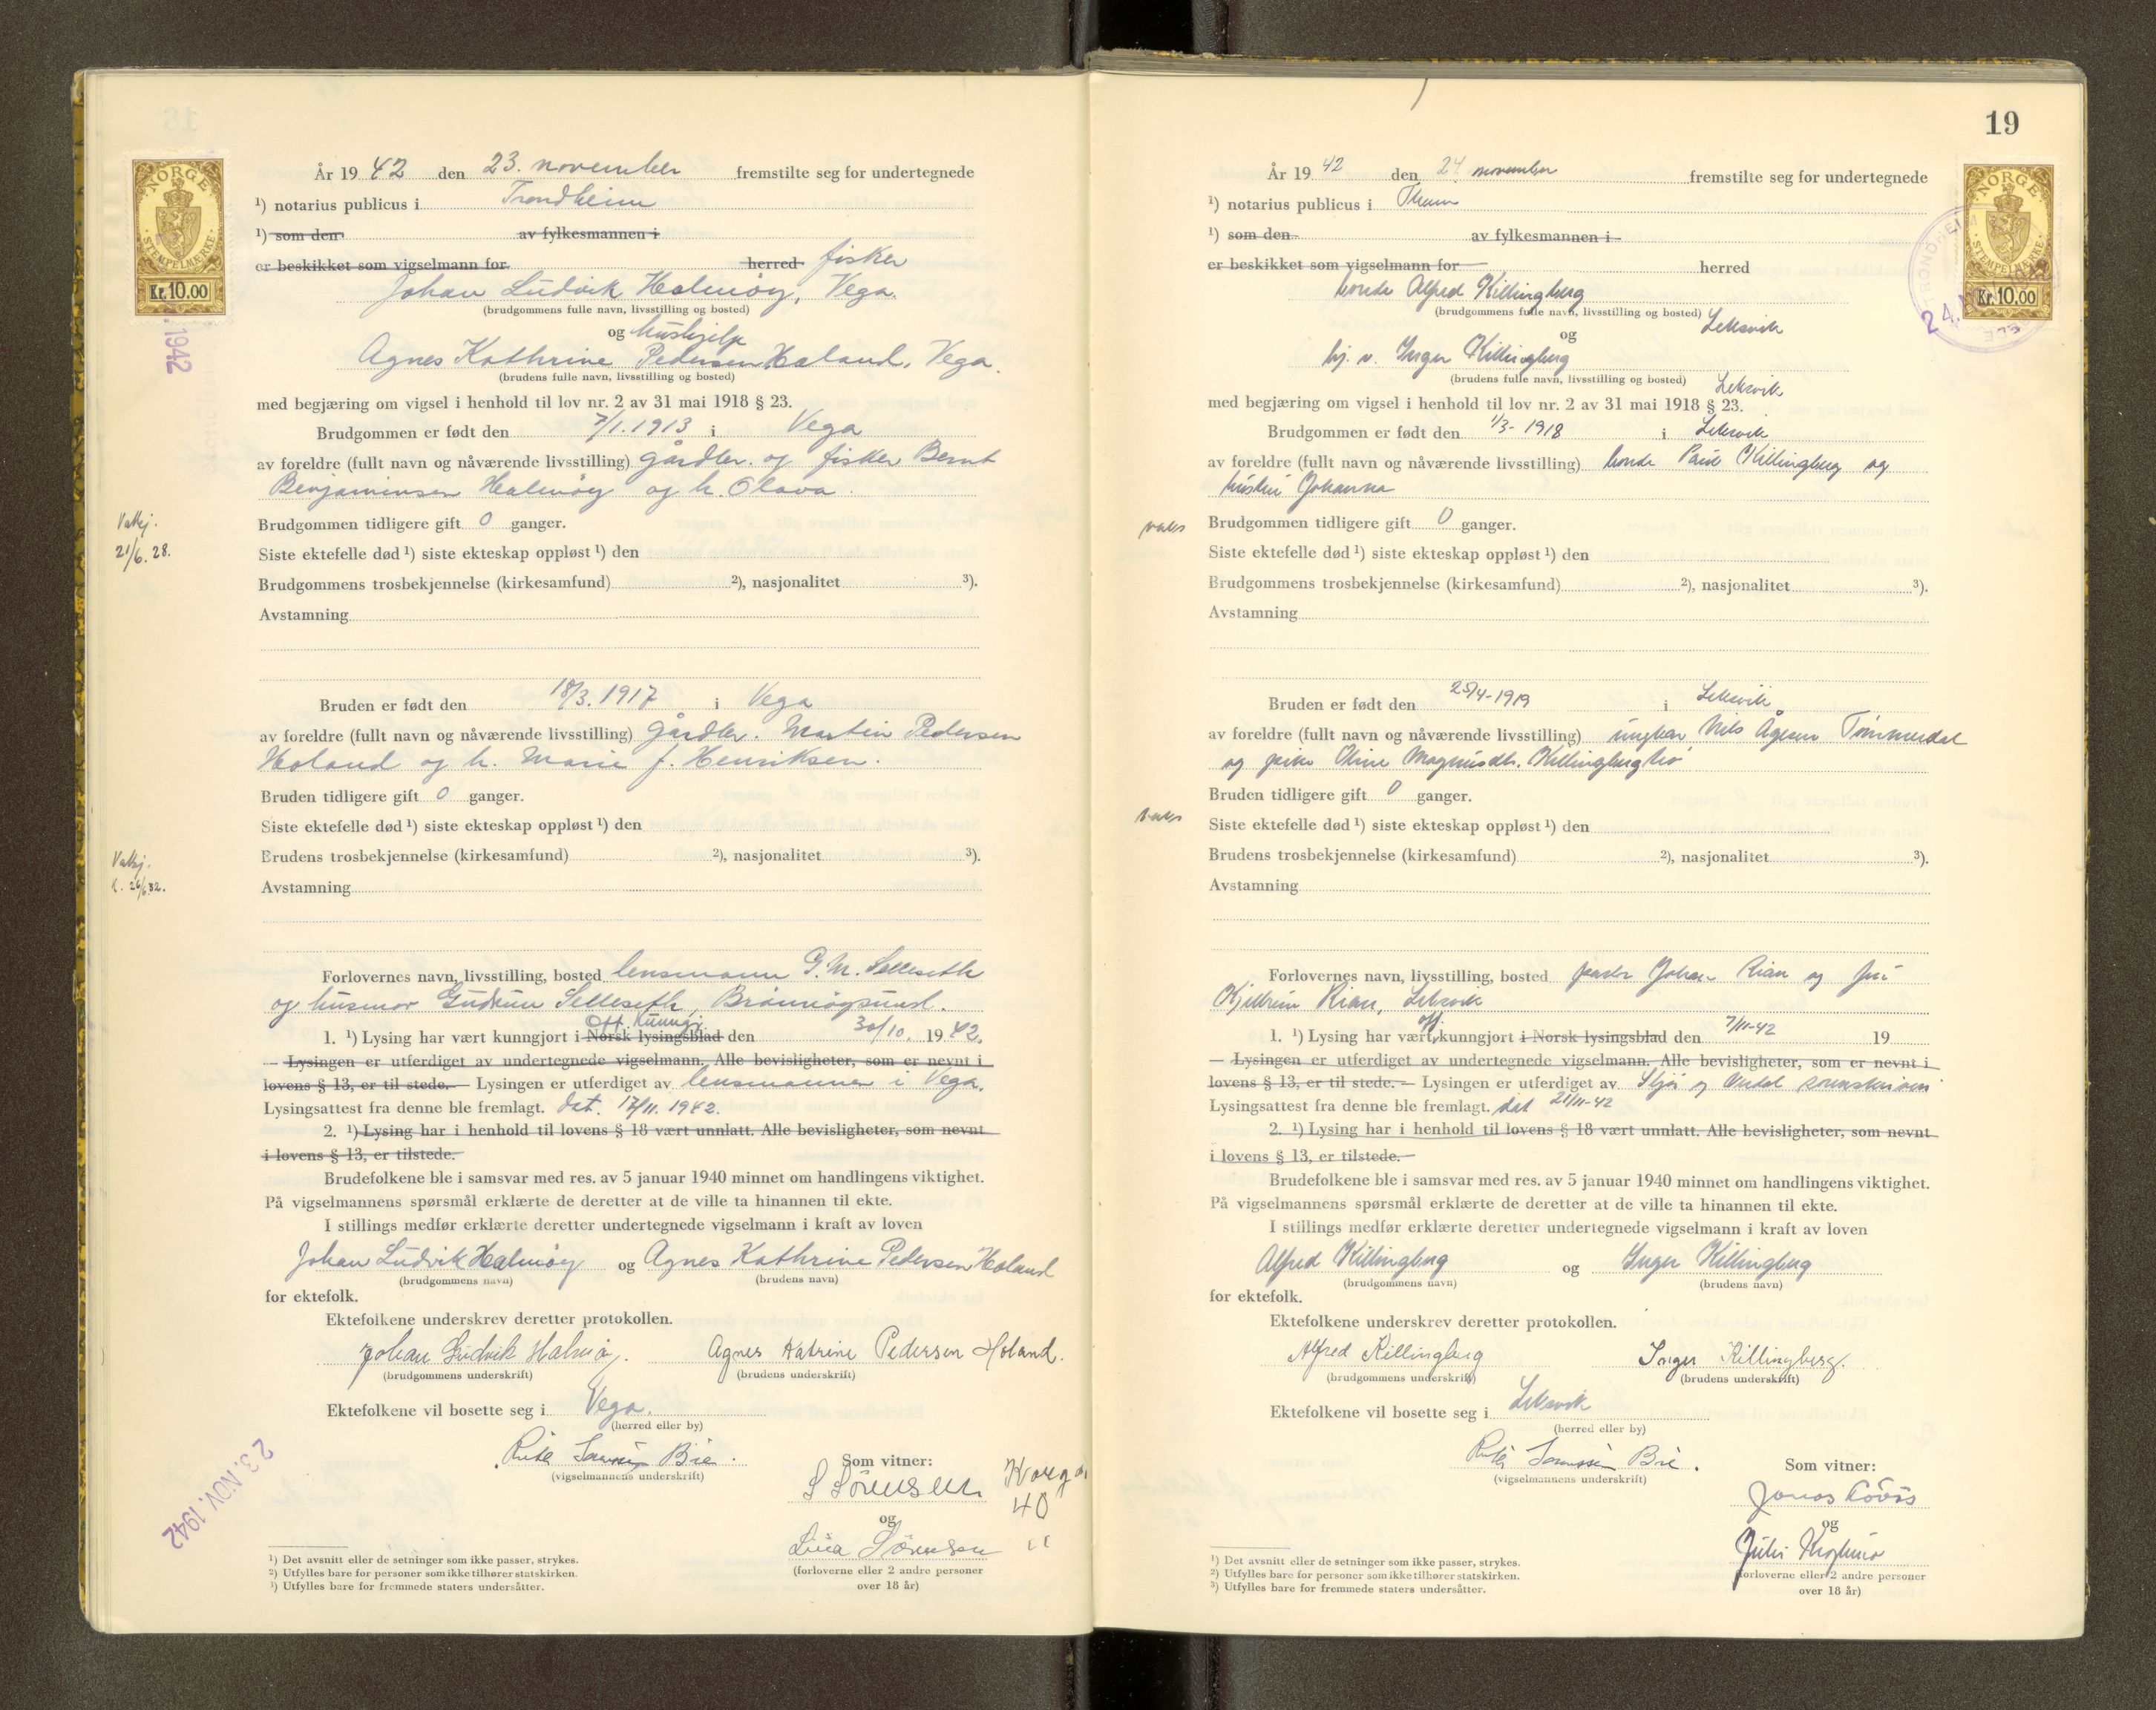 NORGE
STEMPELMERKE
Kr. 10.00
1942
År 1942 den 23. november fremstilte seg for undertegnede
¹) notarius publicus i Trondheim
¹) som den av fylkesmannen i
er beskikket som vigselmann for herred fisker
Johan Ludvik Halmøy, Vega.
(brudgommens fulle navn, livsstilling og bosted)
og hushjelp
Agnes Kathrine Pedersen Holand, Vega.
(brudens fulle navn, livsstilling og bosted)
med begjæring om vigsel i henhold til lov nr. 2 av 31 mai 1918 § 23.
Brudgommen er født den 7/1. 1913 i Vega
av foreldre (fullt navn og nåværende livsstilling) gårdbr. og fisker Bernt
Benjaminsen Halmøy og h. Olava.
Brudgommen tidligere gift 0 ganger.
Vakj.
21/6. 28.
Siste ektefelle død ¹) siste ekteskap oppløst ¹) den
Brudgommens trosbekjennelse (kirkesamfund) ²), nasjonalitet ³).
Avstamning
Bruden er født den 18/3. 1917 i Vega
av foreldre (fullt navn og nåværende livsstilling) gårdbr. Martin Pedersen
Holand og h. Marie f. Henriksen.
Bruden tidligere gift 0 ganger.
Siste ektefelle død ¹) siste ekteskap oppløst ¹) den
Brudens trosbekjennelse (kirkesamfund) ²), nasjonalitet ³).
Vakj.
k. 26/6.32.
Avstamning
Forlovernes navn, livsstilling, bosted lensmann G. M. Selleseth
og husmor Gudrun Selleseth, Brønnøysund.
1. ¹) Lysing har vært kunngjort i Norsk lysingsblad Off. Kunngj. den 30/10. 1942.
— Lysingen er utferdiget av undertegnede vigselmann. Alle bevisligheter, som er nevnt i
lovens § 13, er til stede. — Lysingen er utferdiget av lensmannen i Vega.
Lysingsattest fra denne ble fremlagt. dat. 17/11. 1942.
2. ¹) Lysing har i henhold til lovens § 18 vært unnlatt. Alle bevisligheter, som nevnt
i lovens § 13, er tilstede.
Brudefolkene ble i samsvar med res. av 5 januar 1940 minnet om handlingens viktighet.
På vigselmannens spørsmål erklærte de deretter at de ville ta hinannen til ekte.
I stillings medfør erklærte deretter undertegnede vigselmann i kraft av loven
Johan Ludvik Halmøy og Agnes Kathrine Pedersen Holand
(brudgommens navn) (brudens navn)
for ektefolk.
Ektefolkene underskrev deretter protokollen.
Johan Ludvik Halmøy. Agnes Katrine Pedersen Holand.
(brudgommens underskrift) (brudens underskrift)
Ektefolkene vil bosette seg i Vega.
(herred eller by)
Bie.
(vigselmannens underskrift)
Som vitner:
S Sörensen
40
og
Sörensen
(forloverne eller 2 andre personer
over 18 år)
23. NOV. 1942
¹) Det avsnitt eller de setninger som ikke passer, strykes.
²) Utfylles bare for personer som ikke tilhører statskirken.
³) Utfylles bare for fremmede staters undersåtter.
19
NORGE
STEMPELMERKE
Kr. 10.00
TRONDHEIM
24.
År 1942 den 24. november fremstilte seg for undertegnede
¹) notarius publicus i Thann
¹) som den av fylkesmannen i
er beskikket som vigselmann for herred
bonde Alfred Killingberg
(brudgommens fulle navn, livsstilling og bosted) Leksvik
og
hj. v. Inger Killingberg
(brudens fulle navn, livsstilling og bosted) Leksvik
med begjæring om vigsel i henhold til lov nr. 2 av 31 mai 1918 § 23.
Brudgommen er født den 1/3- 1918 i Leksvik
av foreldre (fullt navn og nåværende livsstilling) bonde Paul Killingberg og
hustru Johanna
vaks
Brudgommen tidligere gift 0 ganger.
Siste ektefelle død ¹) siste ekteskap oppløst ¹) den
Brudgommens trosbekjennelse (kirkesamfund) ²), nasjonalitet ³).
Avstamning
Bruden er født den 25/4-1919 i Leksvik
av foreldre (fullt navn og nåværende livsstilling) ungkar Nils Ågesen Tømmerdal
og pike Oline Magnusdtr. Killingberglio
Bruden tidligere gift 0 ganger.
vaks
Siste ektefelle død ¹) siste ekteskap oppløst ¹) den
Brudens trosbekjennelse (kirkesamfund) ²), nasjonalitet ³).
Avstamning
Forlovernes navn, livsstilling, bosted pastor Johan Rian og fru
Rian, Leksvik
1. ¹) Lysing har vært off. kunngjort i Norsk lysingsblad den 7/11-42 19
— Lysingen er utferdiget av undertegnede vigselmann. Alle bevisligheter, som er nevnt i
lovens § 13, er til stede. — Lysingen er utferdiget av Stjør og Verdal sorenskriveri
Lysingsattest fra denne ble fremlagt. dat 21/11-42
2. ¹) Lysing har i henhold til lovens § 18 vært unnlatt. Alle bevisligheter, som nevnt
i lovens § 13, er tilstede.
Brudefolkene ble i samsvar med res. av 5 januar 1940 minnet om handlingens viktighet.
På vigselmannens spørsmål erklærte de deretter at de ville ta hinannen til ekte.
I stillings medfør erklærte deretter undertegnede vigselmann i kraft av loven
Alfred Killingberg og Inger Killingberg
(brudgommens navn) (brudens navn)
for ektefolk.
Ektefolkene underskrev deretter protokollen.
Alfred Killingberg Inger Killingberg.
(brudgommens underskrift) (brudens underskrift)
Ektefolkene vil bosette seg i Leksvik
(herred eller by)
Bie.
(vigselmannens underskrift)
Som vitner:
Jonas
og
(forloverne eller 2 andre personer
over 18 år)
¹) Det avsnitt eller de setninger som ikke passer, strykes.
²) Utfylles bare for personer som ikke tilhører statskirken.
³) Utfylles bare for fremmede staters undersåtter.